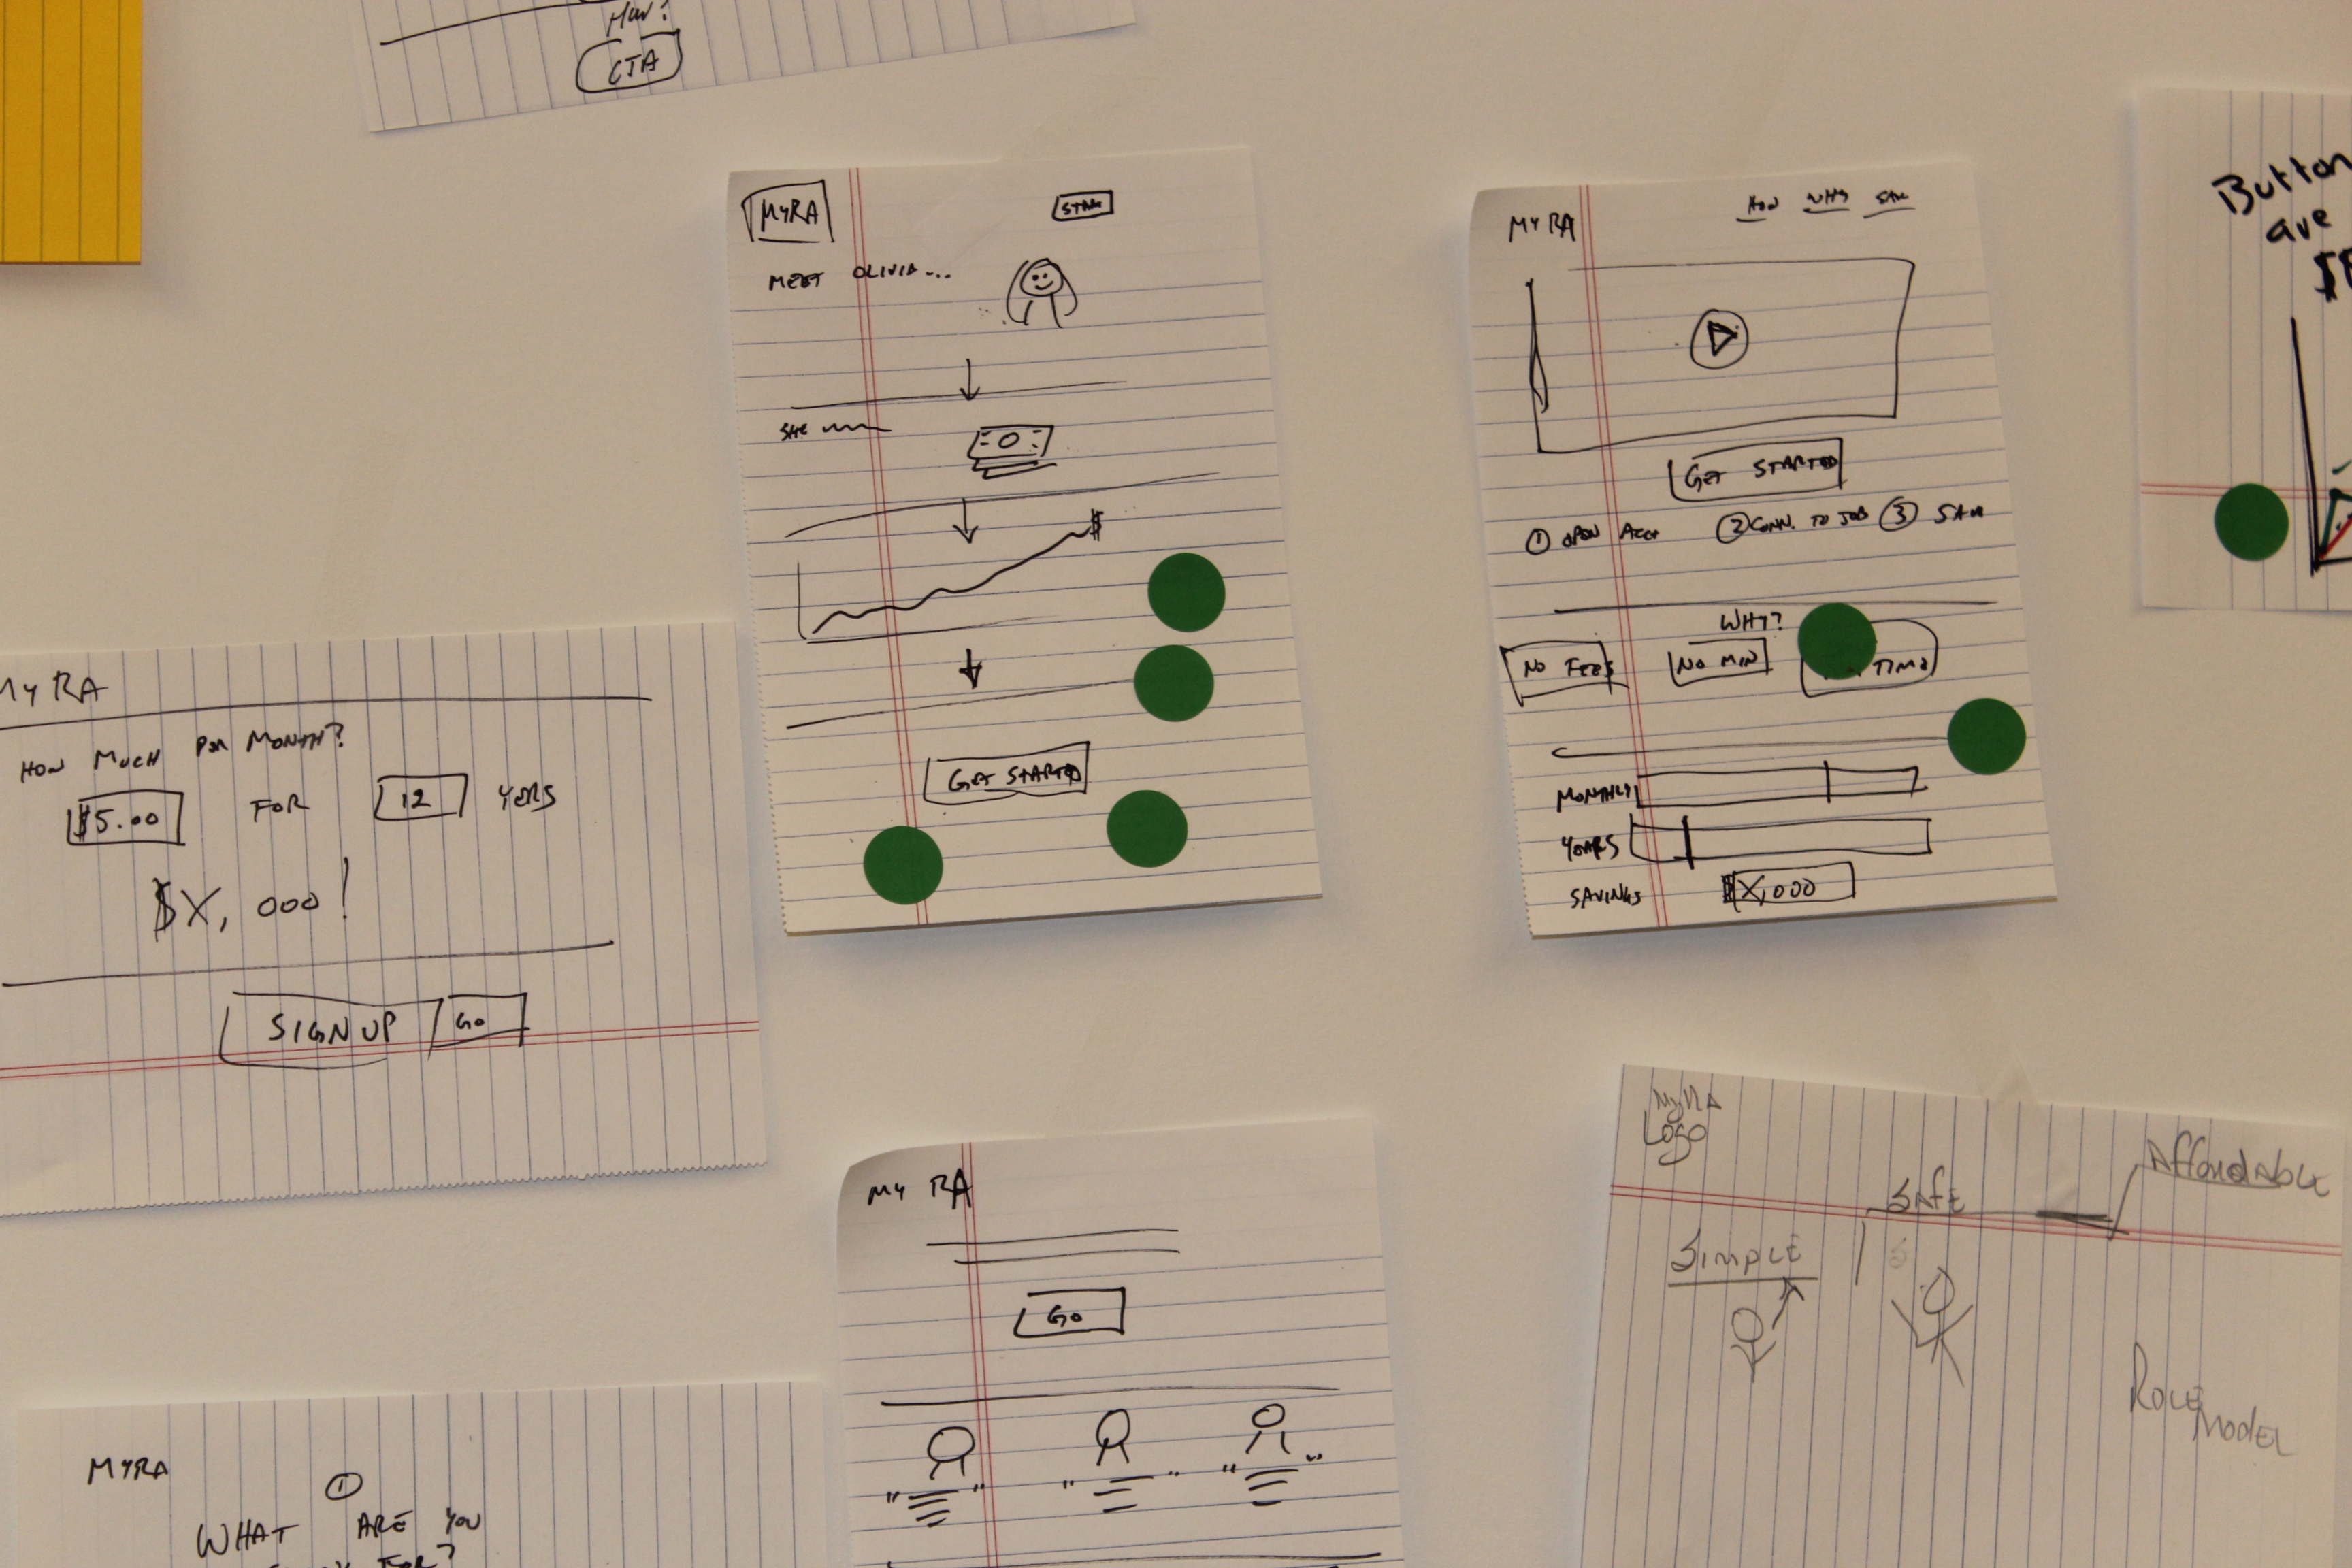 How?
CTA
MYRA
START
MEET OLIVIA...
SHE
$
GET STARTED
MYRA
HOW WHY
GET STARTED
① OPEN ACCT ② CONN. TO JOB ③
WHY?
NO FEES NO MIN TIME
MONTHLY
YEARS
SAVINGS $X,000
Button
are
MYRA
HOW MUCH PER MONTH?
$5.00 FOR 12 YERS
$X,000!
SIGN UP GO
MY RA
GO
" " " " " "
MyRA
Logo
Affordable
SAFE
SIMPLE
ROLE
MODEL
MYRA
①
WHAT ARE YOU
FOR?